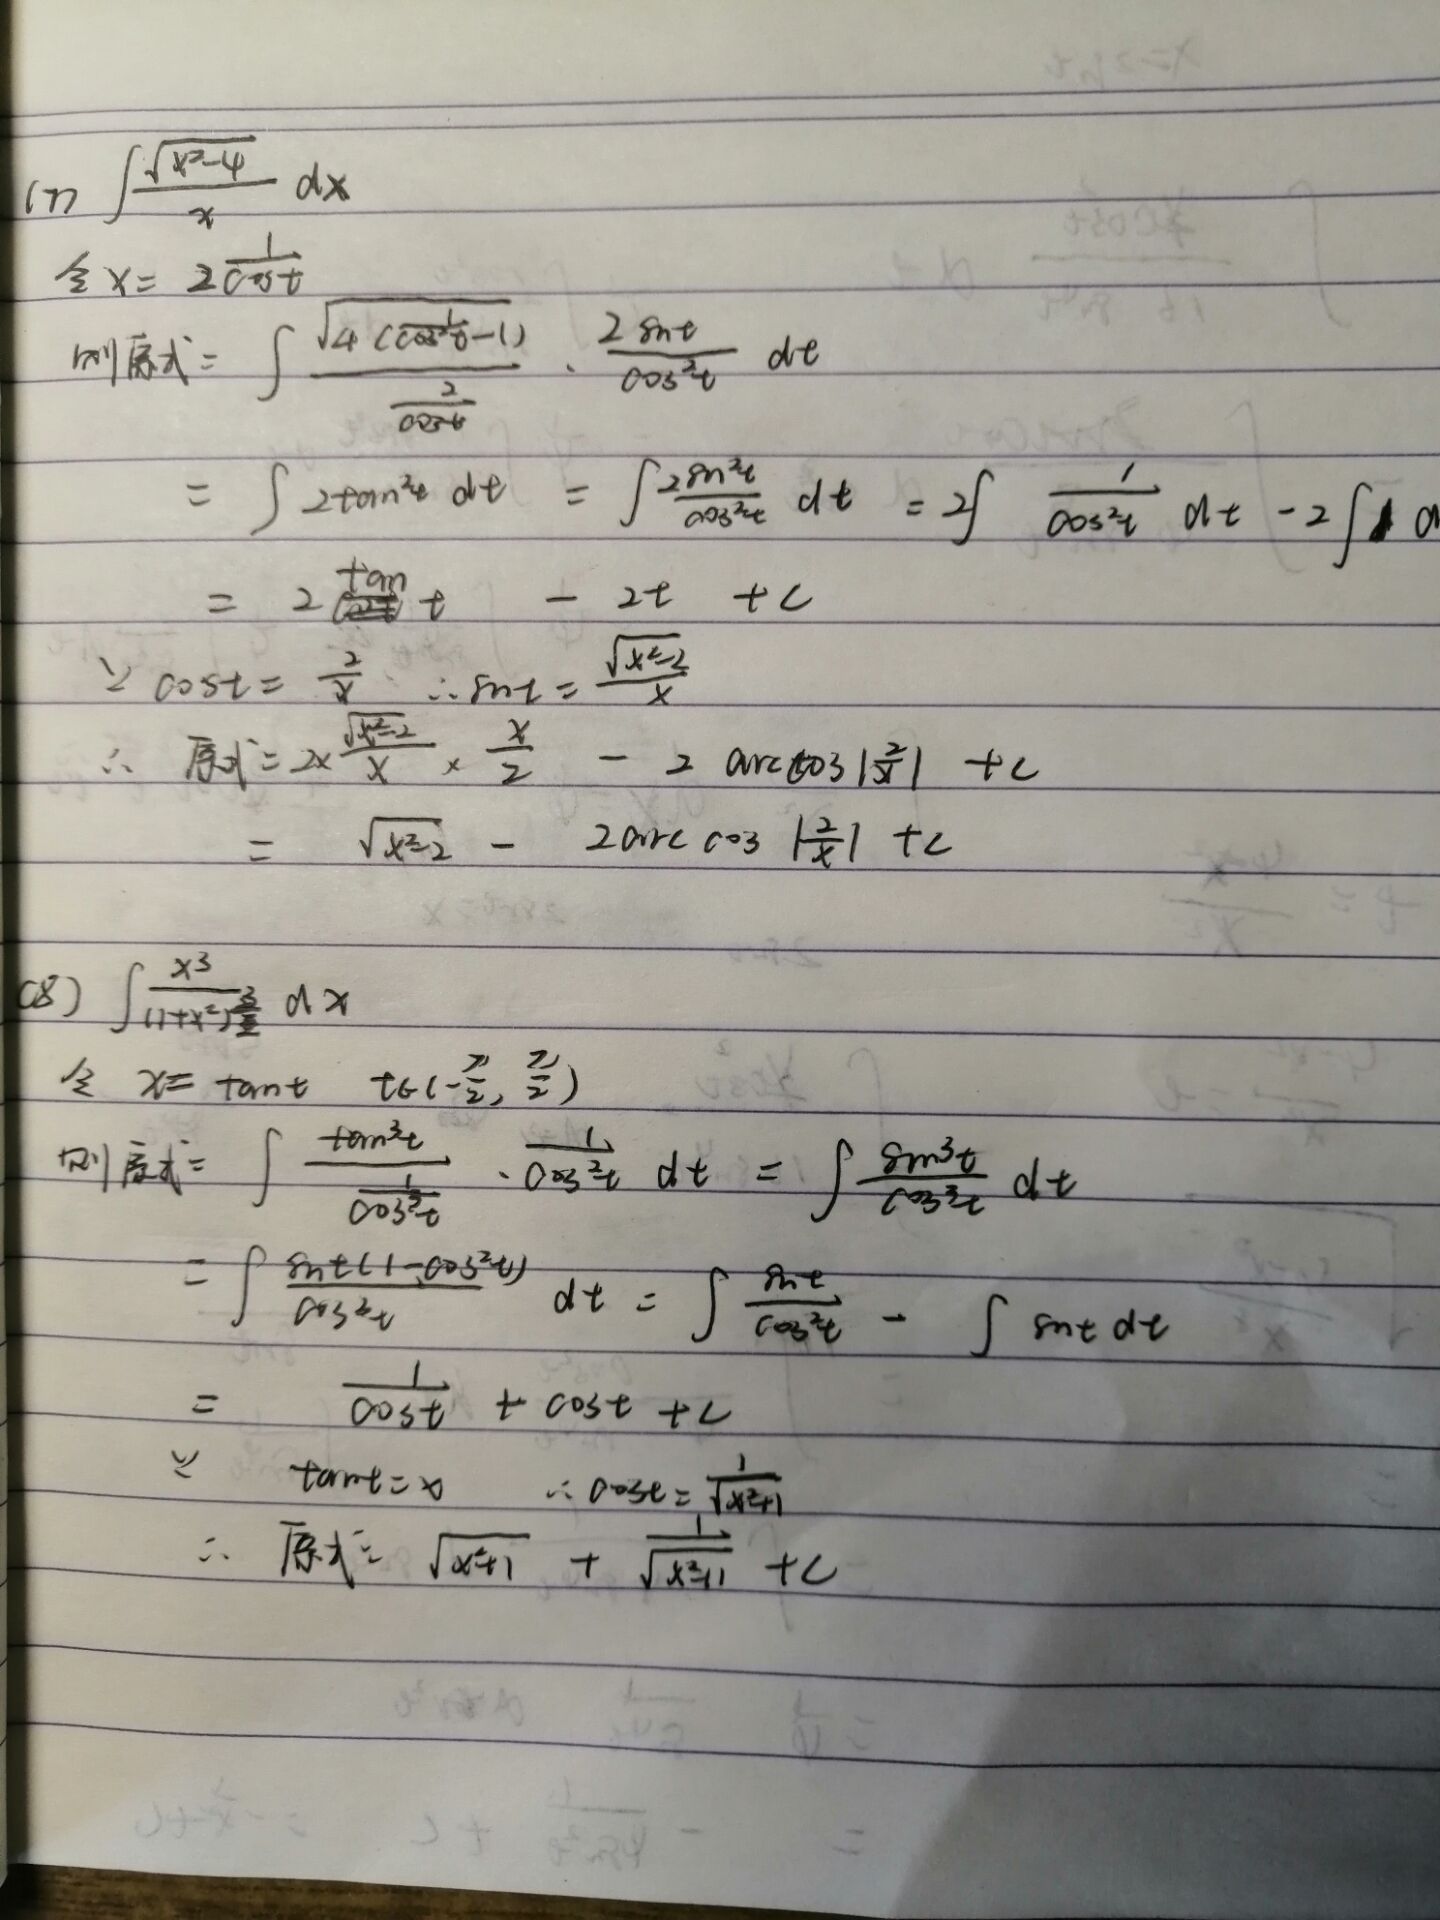 (7) ∫ √(x²-4) / x dx
令 x = 2 1/cost
则原式 = ∫ √(4(1/cos²t -1)) / (2/cost) · 2sint/cos²t dt
= ∫ 2tan²t dt = ∫ 2sin²t/cos²t dt = 2∫ 1/cos²t dt - 2∫ 1 d
= 2 tan t - 2t + C
∵ cost = 2/x ∴ sint = √(x²-2) / x
∴ 原式 = 2× √(x²-2)/x × x/2 - 2 arccos |2/x| + C
= √(x²-2) - 2arccos |2/x| + C
(8) ∫ x³/(1+x²)^(3/2) dx
令 x = tant t∈(-π/2, π/2)
则原式 = ∫ tan³t / (1/cos³t) · 1/cos²t dt = ∫ sin³t/cos²t dt
= ∫ sint(1-cos²t)/cos²t dt = ∫ sint/cos²t - ∫ sint dt
= 1/cost + cost + C
∵ tant = x ∴ cost = 1/√(x²+1)
∴ 原式 = √(x²+1) + 1/√(x²+1) + C